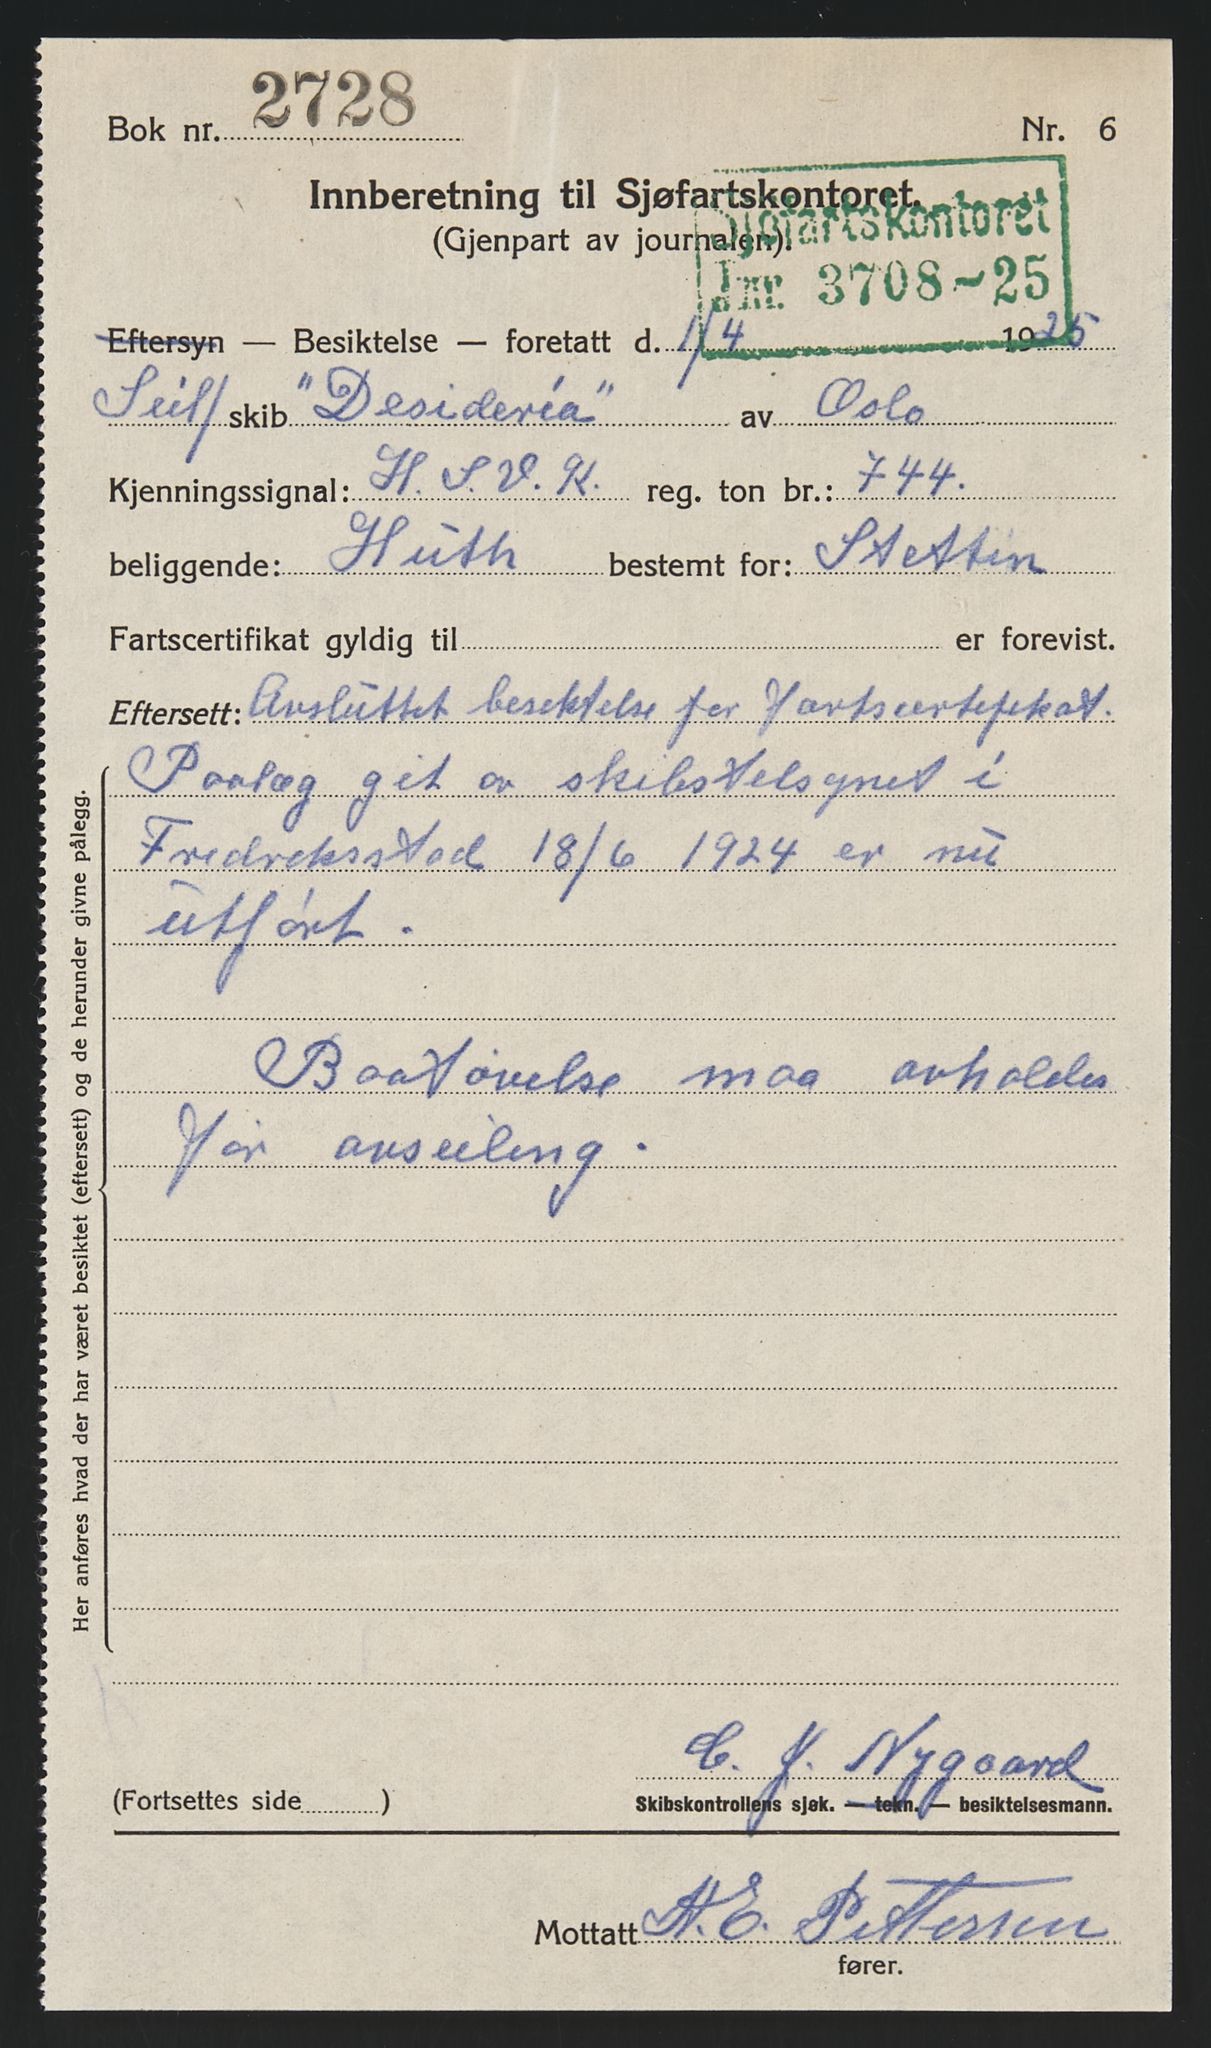 Bok nr. 2728 Nr. 6
Innberetning til Sjøfartskontoret.
(Gjenpart av journalen).
Sjøfartskontoret
Jnr. 3708-25
Eftersyn — Besiktelse — foretatt d. 1/4 1925
Seil/skib "Desideria" av Oslo
Kjenningssignal: H. S. V. K. reg. ton br.: 744.
beliggende: Huth bestemt for: Stettin
Fartscertifikat gyldig til er forevist.
Eftersett: Avsluttet besiktelse for Fartscertifikat.
Paalæg git av skibstilsynet i
Fredriksstad 18/6 1924 er nu
utført.
Baatøvelse maa avholdes
før avseiling.
Her anføres hvad der har været besiktet (eftersett) og de herunder givne pålegg.
C. J. Nygaard
(Fortsettes side )
Skibskontrollens sjøk. — tekn. — besiktelsesmann.
Mottatt H. E. Pettersen
fører.